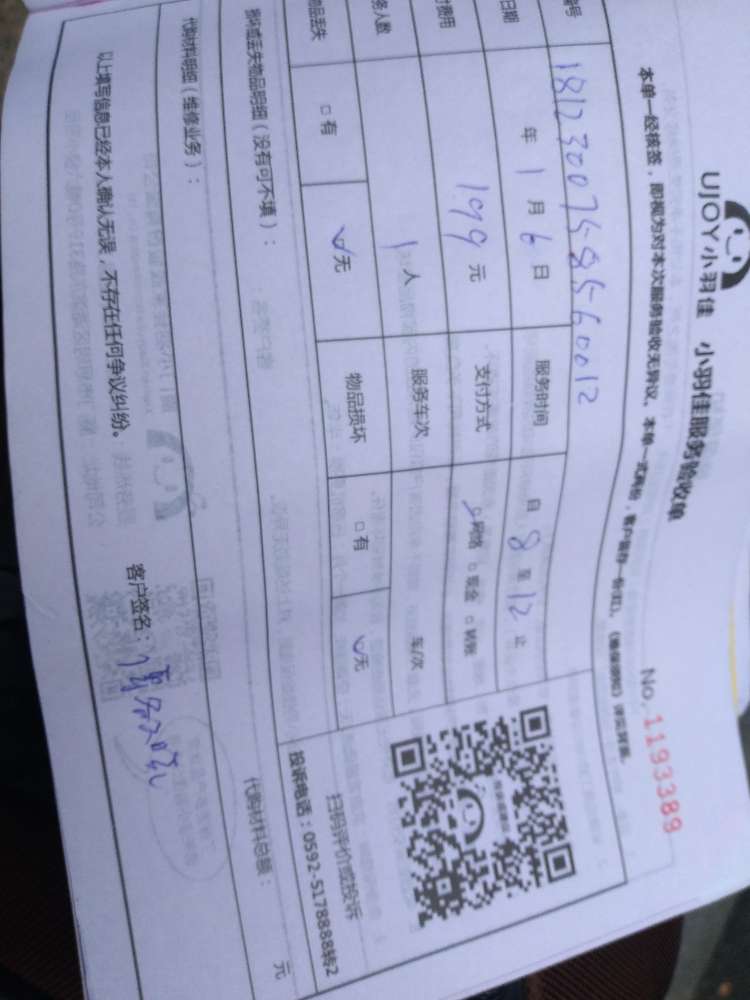 UJOY小羽佳 小羽佳服务验收单
No.1193389
本单一经核签，即视为对本次服务验收无异议。本单一式两份，客户留存一份（红）。
编号 1812300758560012
日期 年 1 月 6 日 服务时间 自 8 至 12 止
付费用 199 元 支付方式 网络 □现金 □转账
务人数 1 人 服务车次 车/次
物品丢失 □有 ☑无 物品损坏 □有 ☑无
损坏或丢失物品明细（没有可不填）：
扫码评价或投诉
投诉电话：0592-5178888转2
代购材料明细（维修业务）： 代购材料总额： 元
以上填写信息已经本人确认无误，不存在任何争议纠纷。 客户签名：